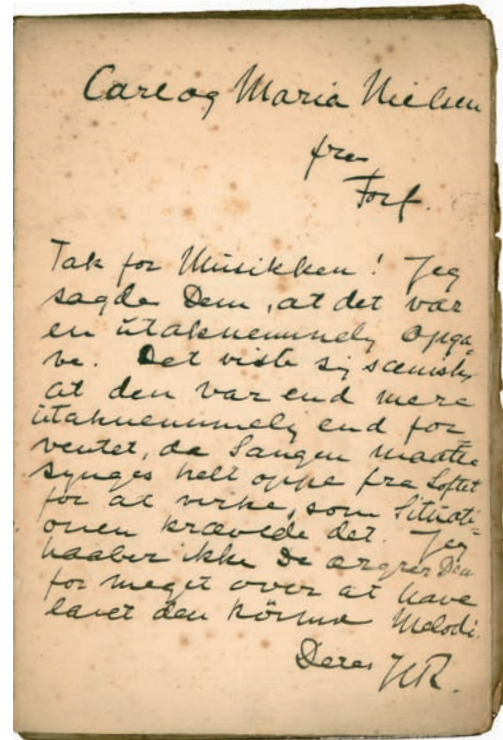 Carl og Maria Nielsen
fra
Forf.
Tak for Musikken! Jeg
sagde Dem, at det var
en utaknemmelig Opga-
ve. Det viste sig
at den var end mere
utaknemmelig end for-
ventet, da Sangen maatte
synges helt oppe fra Loftet
for at virke, som Situati-
onen krævede det. Jeg
haaber ikke De ærgrer Dem
for meget over at have
lavet den kønne Melodi.
Deres HR.